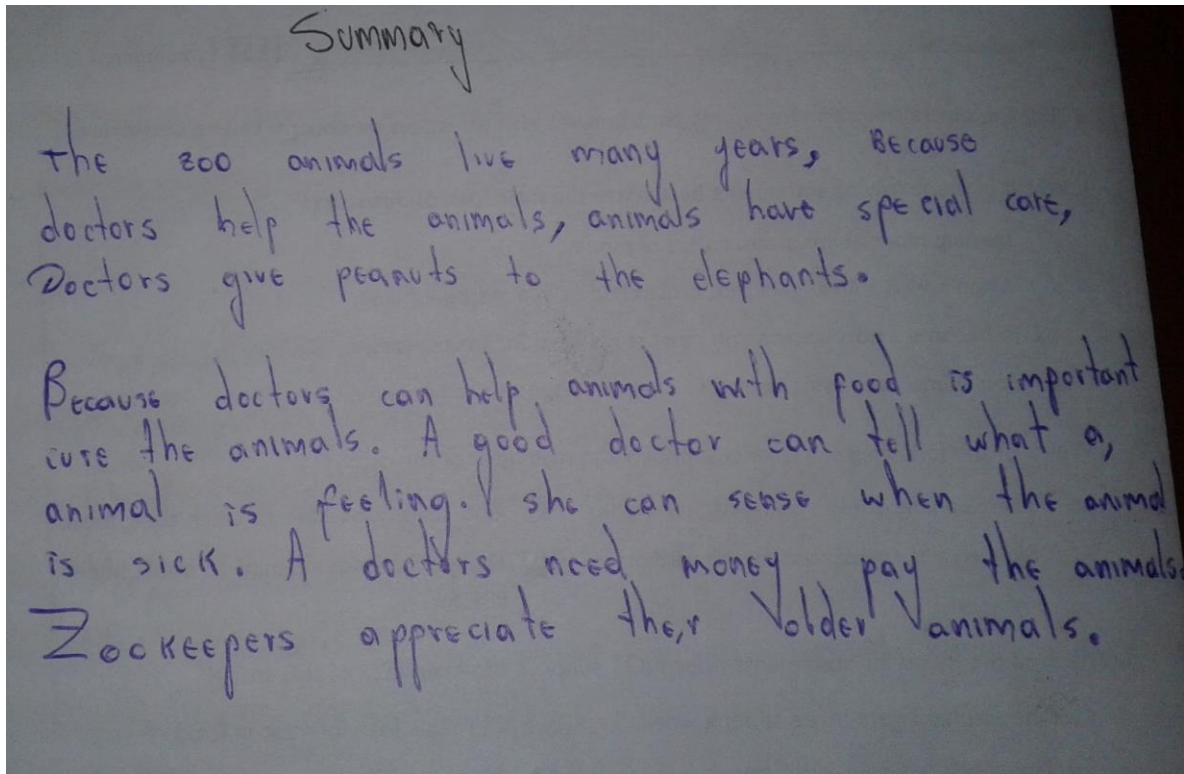 Summary
the zoo animals live many years, Because
doctors help the animals, animals have special care,
Doctors give peanuts to the elephants.
Because doctors can help animals with food is important
cure the animals. A good doctor can tell what a,
animal is feeling. she can sense when the animal
is sick. A doctors need money pay the animals.
Zookeepers appreciate their older animals.